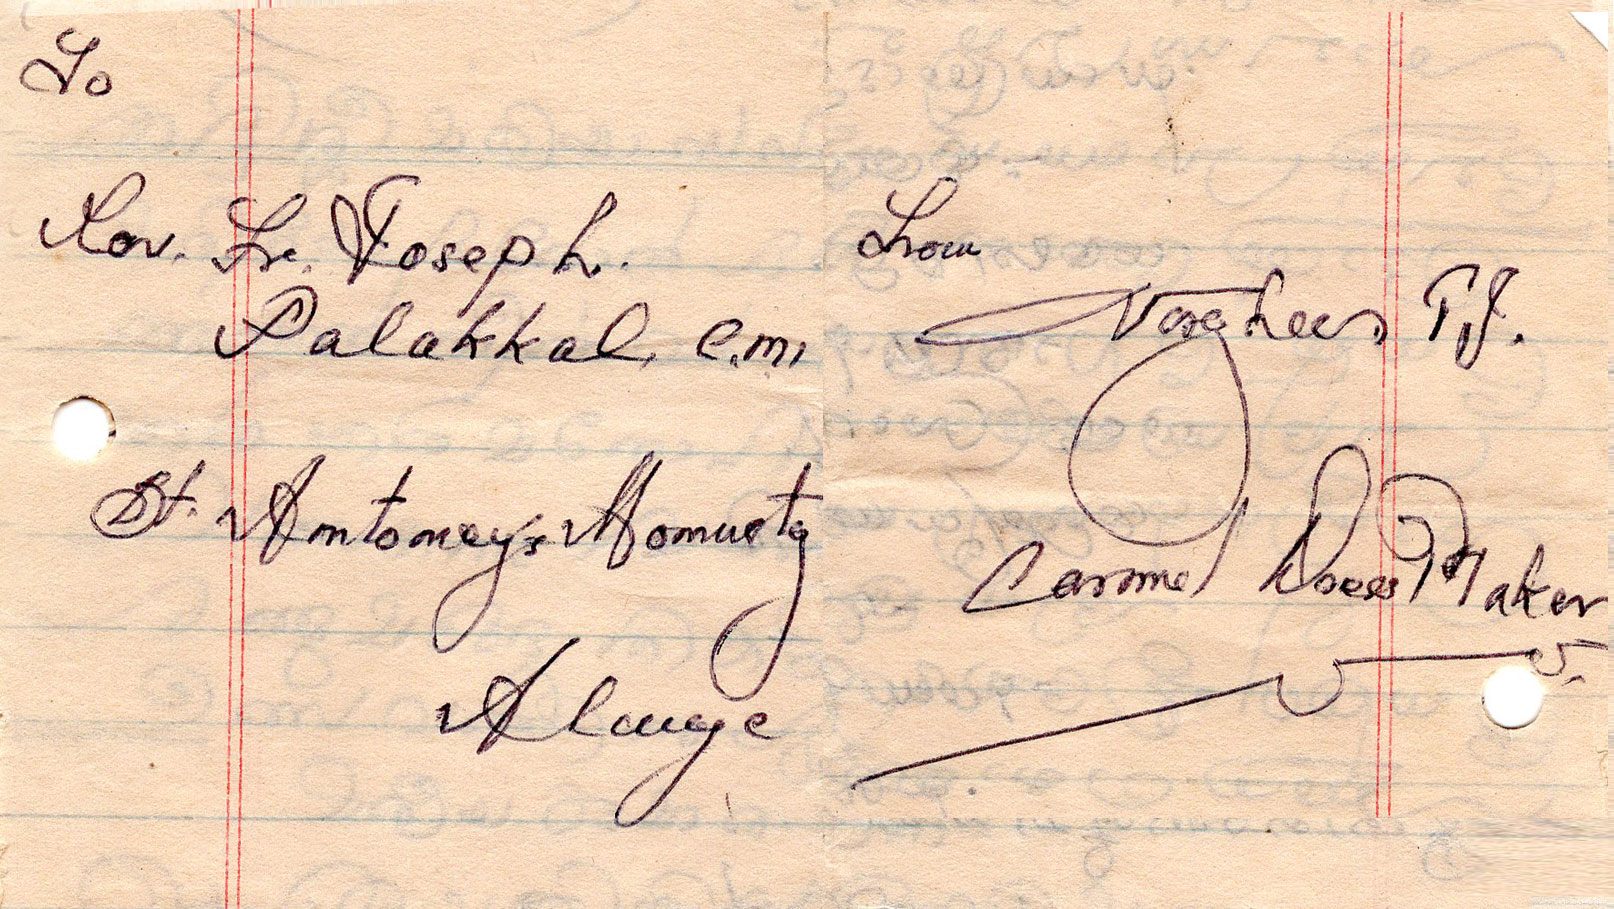 To
Rev. Fr. Joseph.
Palakkal, C.m.i
St. Antoney's Monusty
Aluaye
From
Varghees T.J.
Carmel Dress Maker